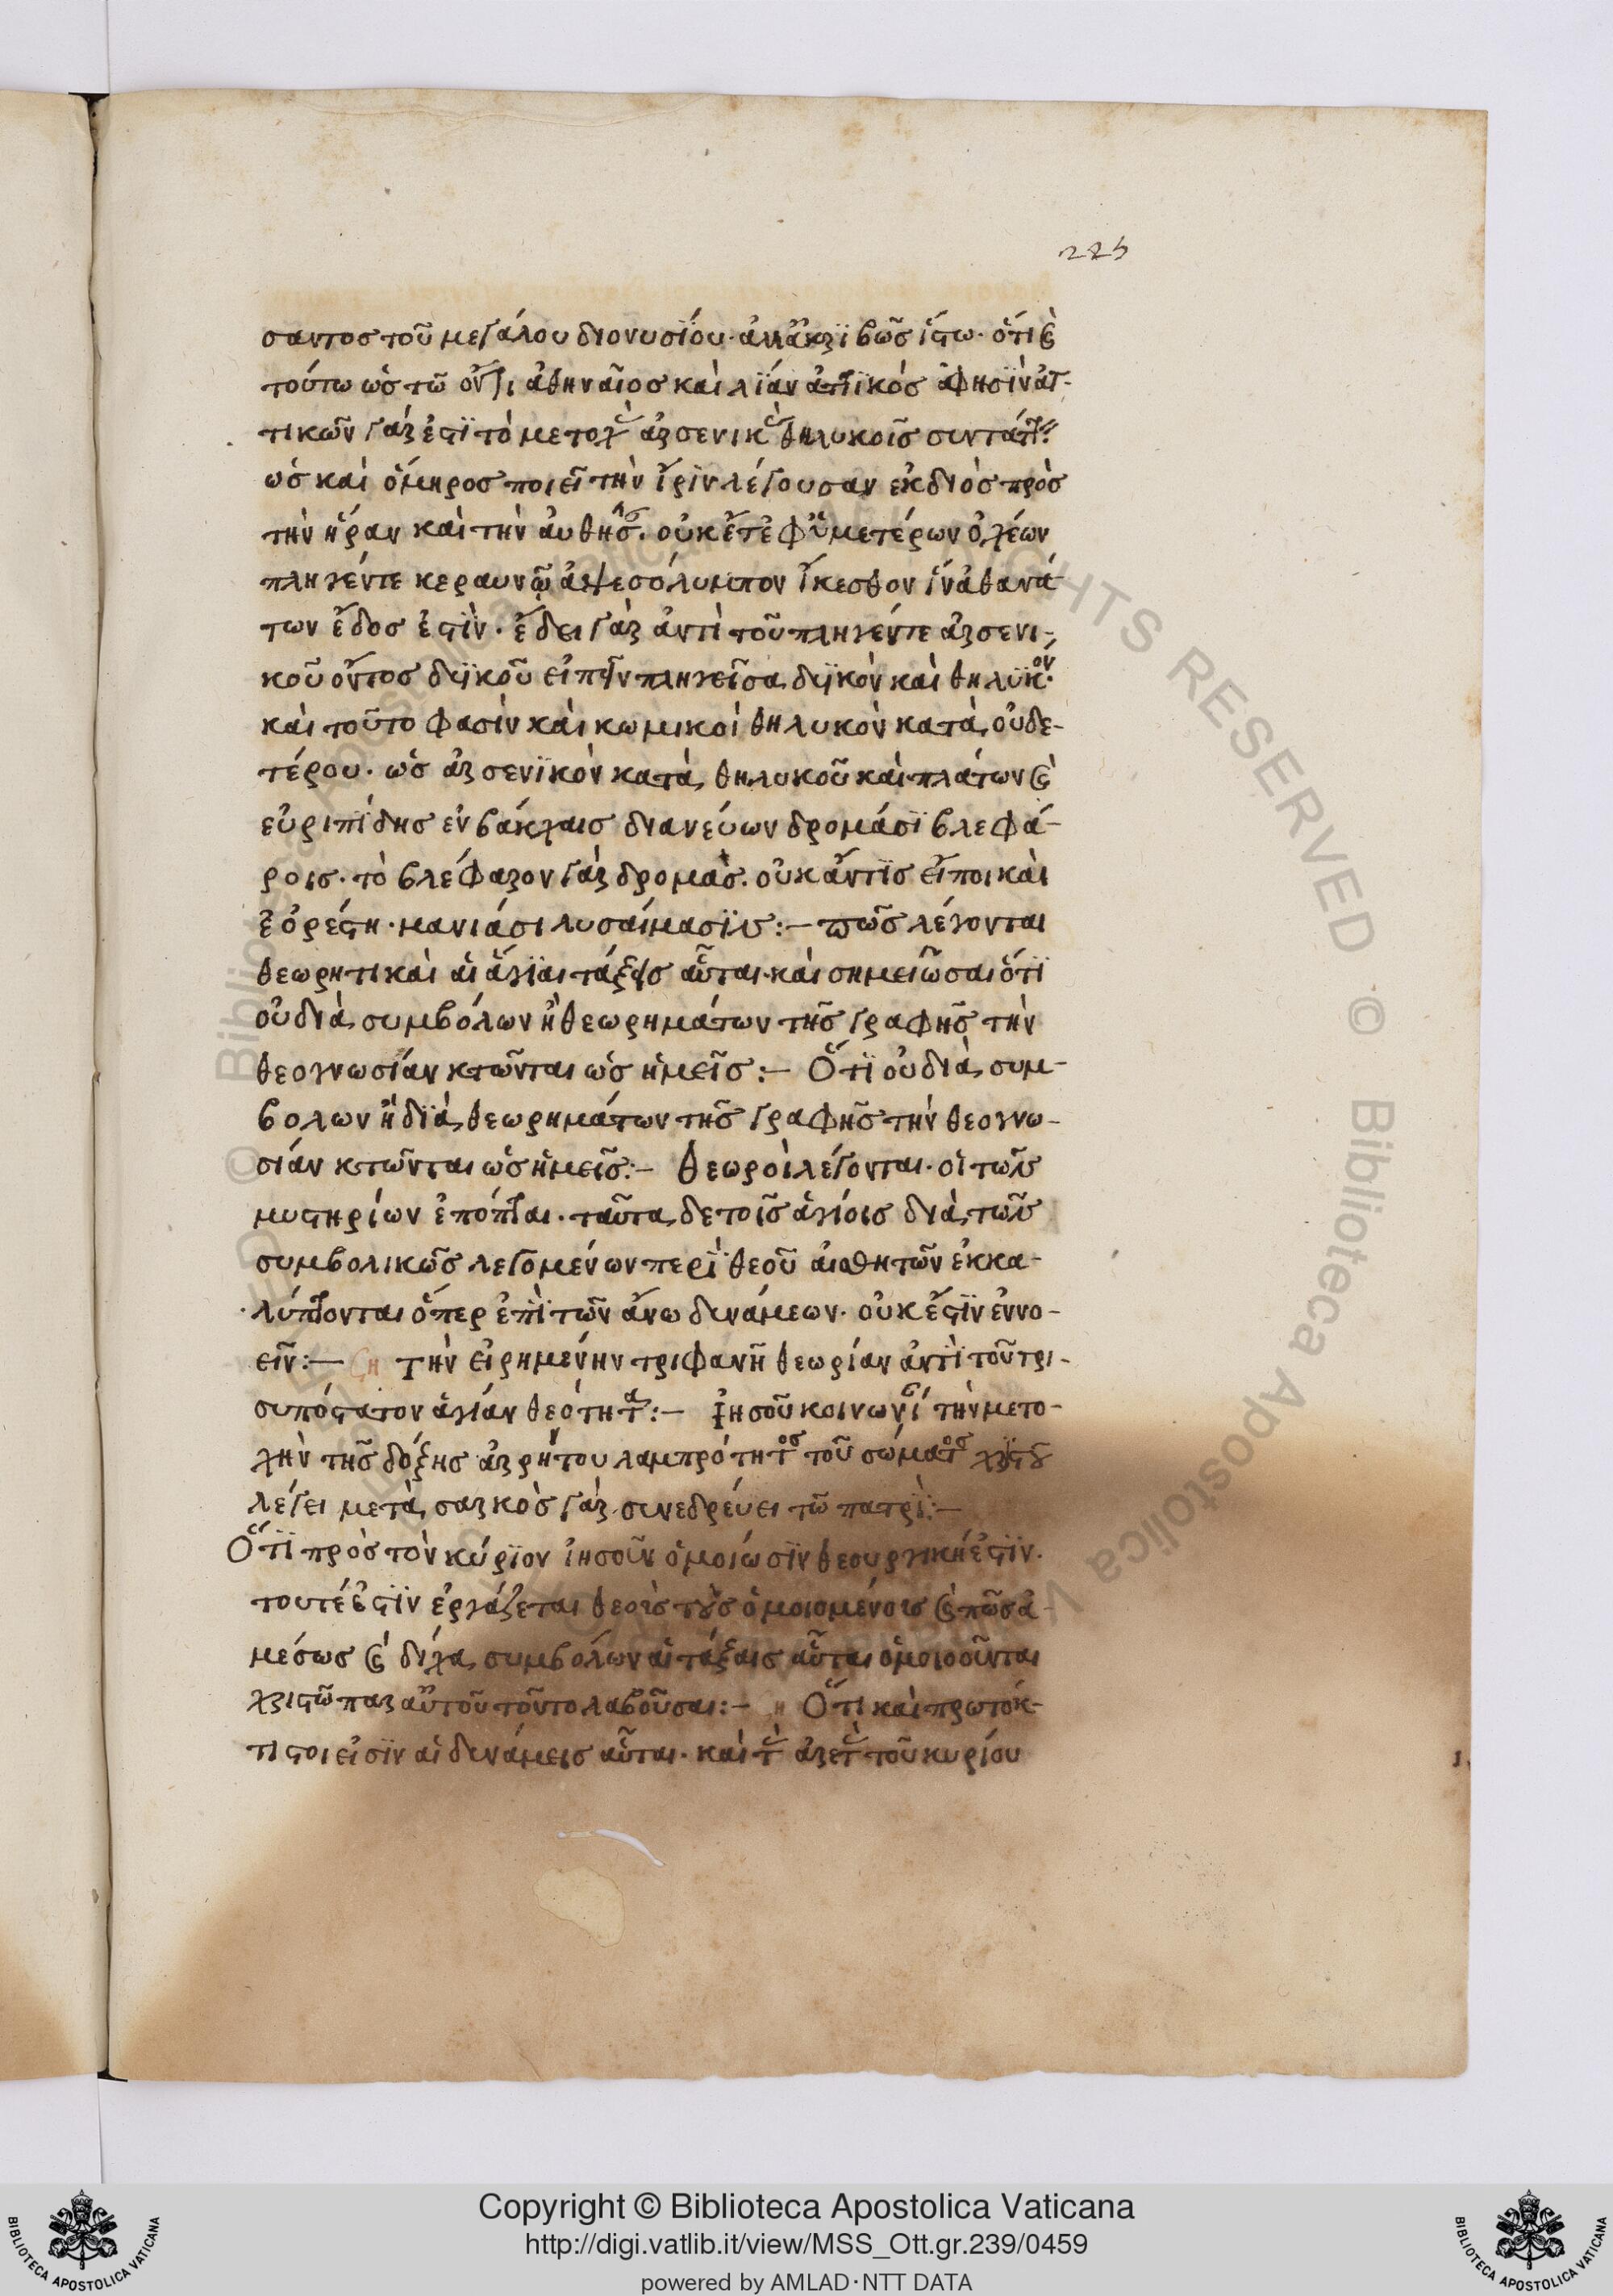 225
σαντος τοῦ μεγάλου διονυσίου· ἀλλ' ἀκριβῶς ἴστω· ὅτι καὶ
τούτω ὡς τῶ ὄντι ἀθηναῖος καὶ λίαν ἀττικός φησὶν ἀτ-
τικῶν γάρ ἐστὶ τὸ μετοχὰς ἀρσενικὰς θηλυκοῖς συντάττειν·
ὡς καὶ ὅμηρος ποιεῖ τὴν ἶριν λέγουσαν ἐκ διὸς πρὸς
τὴν ἥραν καὶ τὴν ἀθηνᾶν· οὐκ ἔτ' ἐφ' ὑμετέρων ὀχέων
πληγέντε κεραυνῶ ἂψ ἐς ὄλυμπον ἵκεσθον ἵν' ἀθανά
των ἕδος ἐστίν· ἔδει γὰρ ἀντὶ τοῦ πληγέντε ἀρσενι-
κοῦ ὄντος δυϊκοῦ εἰπεῖν πληγεῖσα δυϊκὸν καὶ θηλυκόν·
καὶ τοῦτο φασὶν καὶ κωμικοὶ θηλυκὸν κατὰ οὐδε-
τέρου· ὡς ἀρσενικὸν κατὰ θηλυκοῦ καὶ πλάτων καὶ
εὐριπίδης ἐν βάκχαις διανεύων δρομάσι βλεφά-
ροις· τὸ βλέφαρον γὰρ δρομὰς· οὐκ ἄν τις εἴποι καὶ
ἐξ ὀρέστη· μανιάσι λυσαίμασιν:— πῶς λέγονται
θεωρητικαὶ αἱ ἅγιαι τάξεις αὗται· καὶ σημειῶσαι ὅτι
οὐ διὰ συμβόλων ἢ θεωρημάτων τῆς γραφῆς τὴν
θεογνωσίαν κτῶνται ὡς ἡμεῖς:— Ὅτι οὐ διὰ συμ-
βολων ἢ διὰ θεωρημάτων τῆς γραφῆς τὴν θεογνω-
σίαν κτῶνται ὡς ἡμεῖς:— θεωροὶ λέγονται· οἱ τῶν
μυστηρίων ἐπόπται· ταῦτα δὲ τοῖς ἁγίοις διὰ τῶν
συμβολικῶς λεγομένων περὶ θεοῦ αἰσθητῶν ἐκκα-
λύπτονται ὅπερ ἐπὶ τῶν ἄνω δυνάμεων· οὐκ ἔστιν ἐννο-
εῖν:— ση Τὴν εἰρημένην τριφανῆ θεωρίαν ἀντὶ τοῦ τρι-
συπόστατον ἁγίαν θεότητα:— Ἰησοῦ κοινωνί τὴν μετο-
χὴν τῆς δόξης ἀρρήτου λαμπρότητος τοῦ σώματος χριστοῦ
λέγει μετὰ σαρκὸς γὰρ συνεδρεύει τῶ πατρί:—
Ὅτι πρὸς τὸν κύριον ἰησοῦν ὁμοιώσιν θεουργική ἐστιν·
τουτέστιν ἐργάζεται θεοὶς τοὺς ὁμοιομένοις καὶ πῶς ἀ-
μέσως καὶ δίχα συμβόλων αἱ τάξαις αὗται ὁμοιοῦνται
χριστῶ παρ αὐτοῦ τοῦντο λαβοῦσαι:— Ὅτι καὶ πρωτόκ-
τιστοι εἰσὶν αἱ δυνάμεις αὗται· καὶ τὰς ἀρετὰς τοῦ κυρίου
Copyright © Biblioteca Apostolica Vaticana
http://digi.vatlib.it/view/MSS_Ott.gr.239/0459
powered by AMLAD·NTT DATA